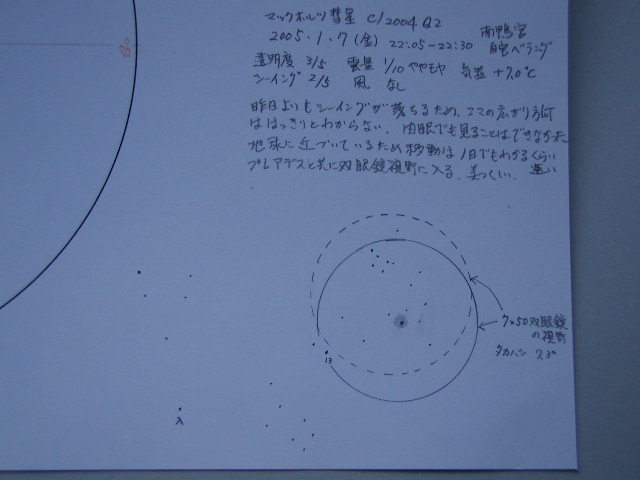 マックホルツ彗星 C/2004 Q2
2005.1.7 (金) 22:05~22:30 南鴨宮 自宅ベランダ
透明度 3/5 雲量 1/10 ややモヤ 気温 +7.0°C
シーイング 2/5 風 なし
昨日よりもシーイングが落ちるため、コマの広がり方
ははっきりとわからない。肉眼でも見ることはできなかった
地球に近づいているため移動は1日でもわかるくらい速い
プレアデスと共に双眼鏡視野に入る。美しい。
7×50双眼鏡
の視野
タカハシ 7.3°
13
λ